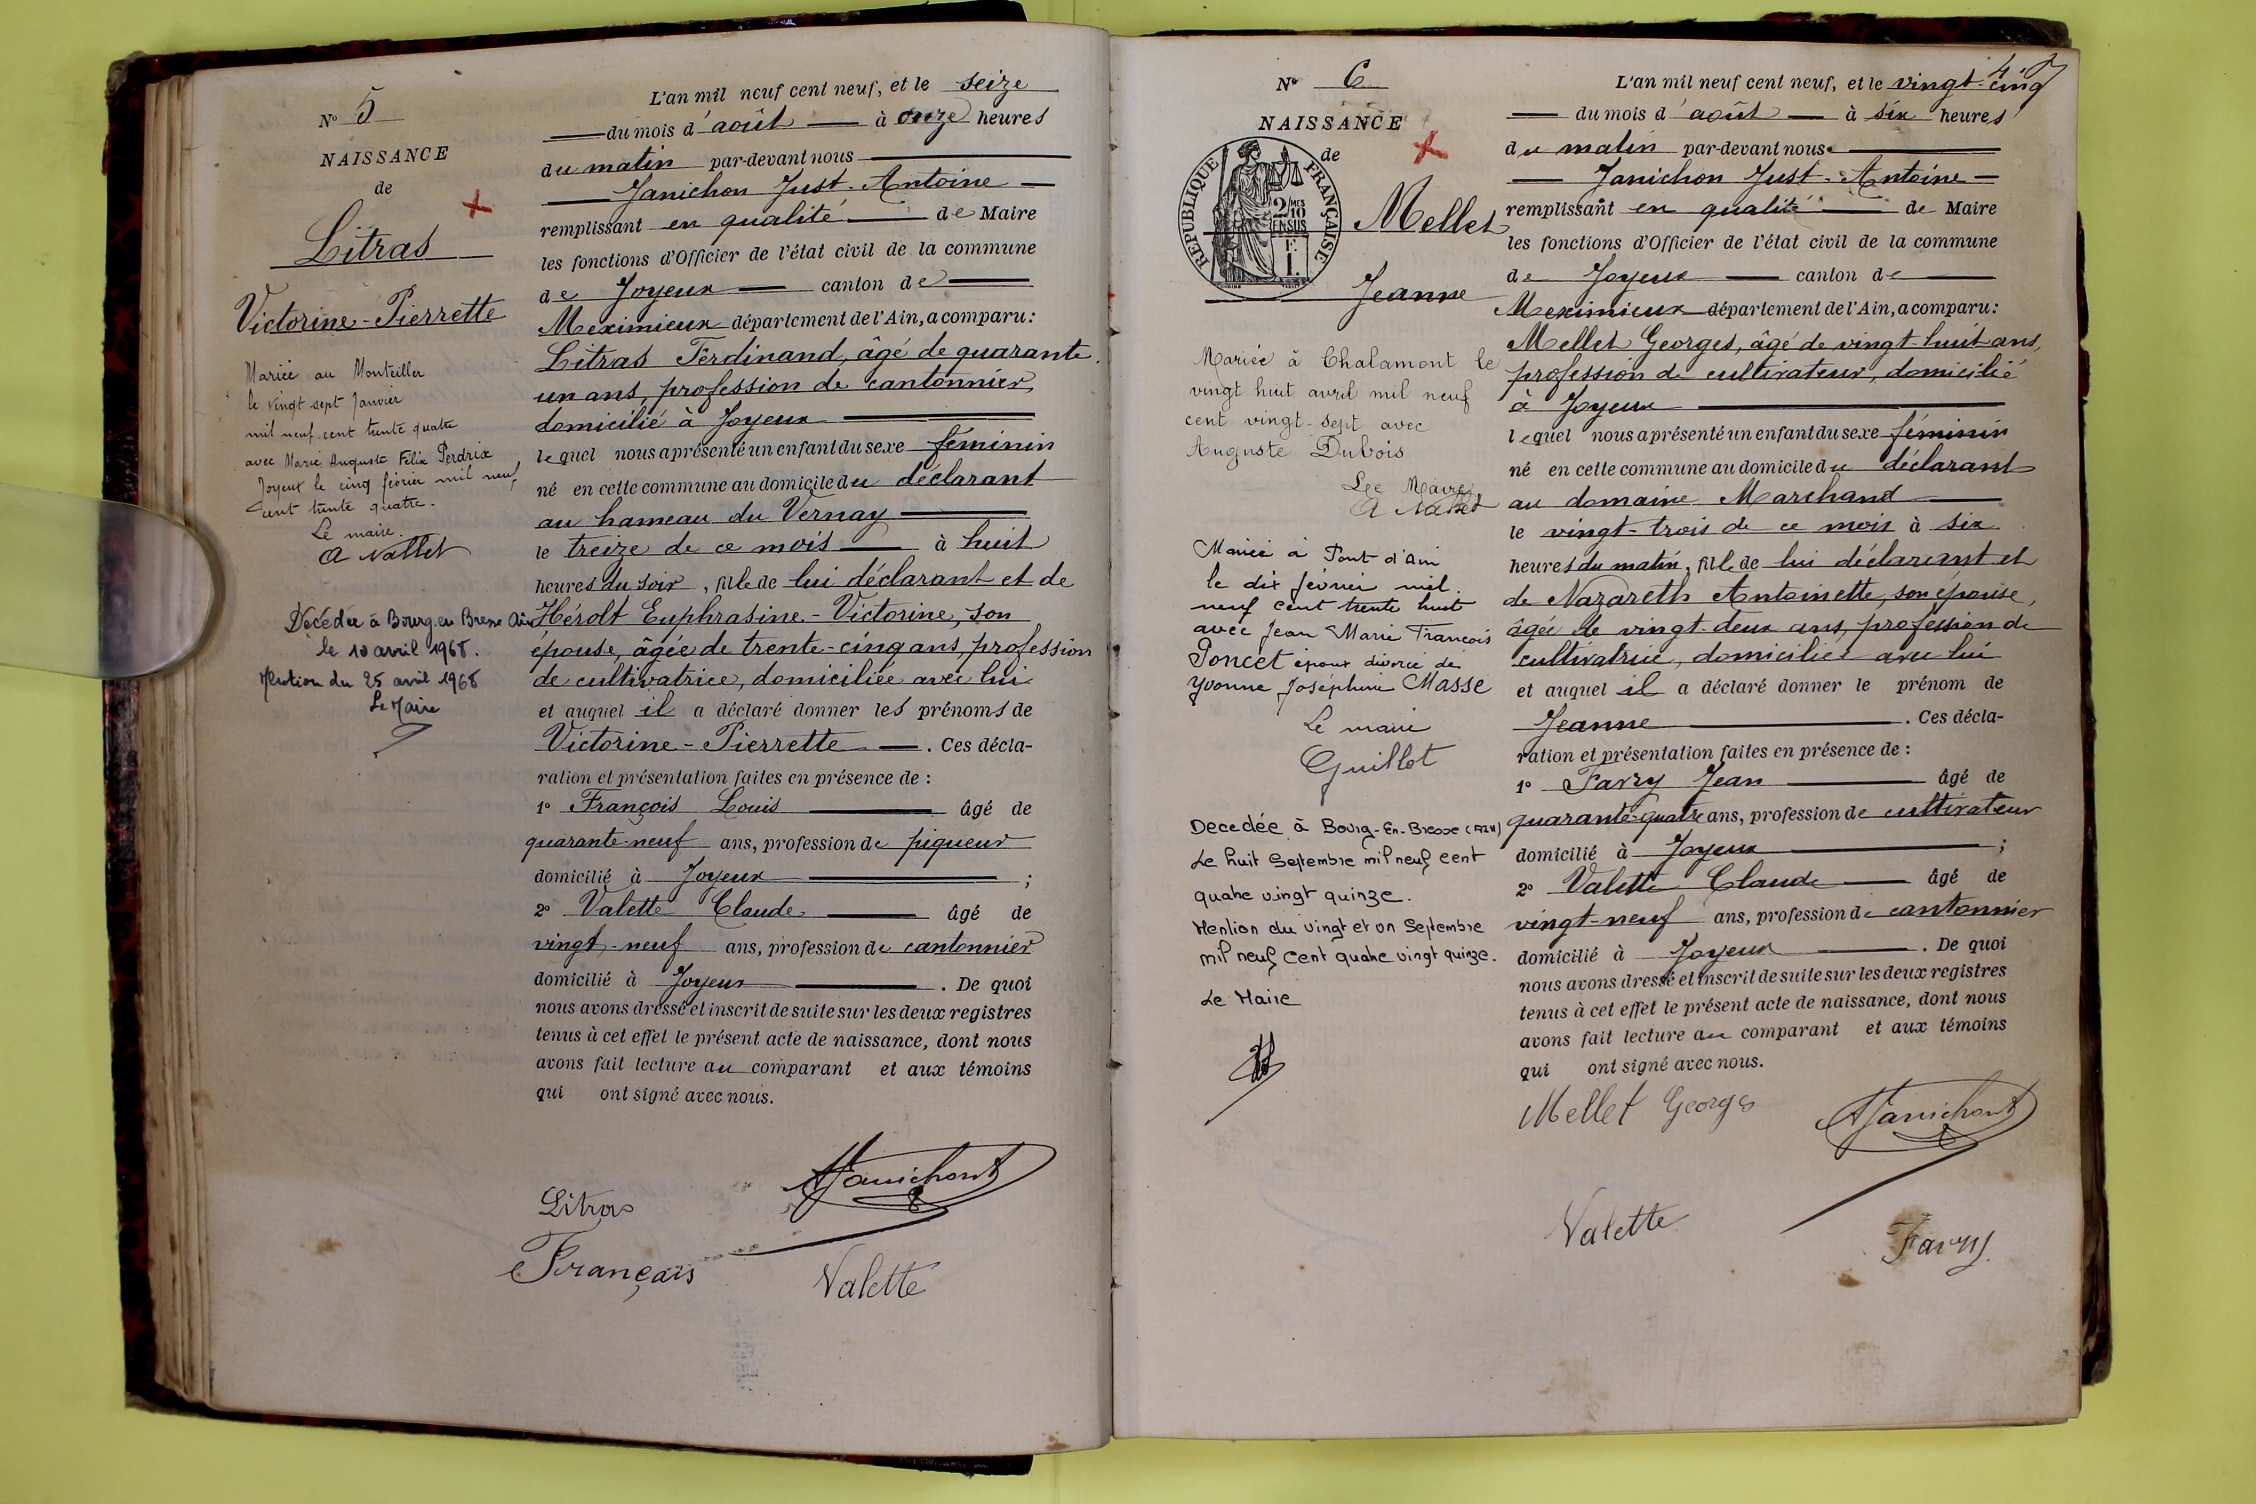 N° 5
NAISSANCE
de
Litras
Victorine-Pierrette
Mariée au Montellier
le vingt sept Janvier
mil neuf cent trente quatre
avec Marie Auguste Félix Perdrix
Joyeux le cinq février mil neuf
cent trente quatre.
Le maire.
A Nallet
Décédée à Bourg en Bresse Ain
le 10 avril 1968.
Mention du 25 avril 1968
Le Maire
L'an mil neuf cent neuf, et le seize
du mois d'août à onze heures
du matin par-devant nous
Janichon Just-Antoine
remplissant en qualité de Maire
les fonctions d'Officier de l'état civil de la commune
de Joyeux canton de
Meximieux département de l'Ain, a comparu:
Litras Ferdinand, âgé de quarante
un ans, profession de cantonnier,
domicilié à Joyeux
lequel nous a présenté un enfant du sexe féminin
né en cette commune au domicile du déclarant
au hameau du Vernay
le treize de ce mois à huit
heures du soir, fille de lui déclarant et de
Hérolt Euphrasine-Victorine, son
épouse, âgée de trente-cinq ans, profession
de cultivatrice, domiciliée avec lui
et auquel il a déclaré donner les prénoms de
Victorine-Pierrette. Ces décla-
ration et présentation faites en présence de:
1° François Louis âgé de
quarante-neuf ans, profession de piqueur
domicilié à Joyeux;
2° Valette Claude âgé de
vingt-neuf ans, profession de cantonnier
domicilié à Joyeux. De quoi
nous avons dressé et inscrit de suite sur les deux registres
tenus à cet effet le présent acte de naissance, dont nous
avons fait lecture au comparant et aux témoins
qui ont signé avec nous.
AJanichont
Litras
Français
Valette
47
N° 6
NAISSANCE
de
RÉPUBLIQUE FRANÇAISE
2/10 MES
EN SUS
1 F.
Mellet
Jeanne
Mariée à Chalamont le
vingt huit avril mil neuf
cent vingt-sept avec
Auguste Dubois
Le Maire
A Nallet
Mariée à Pont d'Ain
le dix février mil
neuf cent trente huit
avec Jean Marie François
Poncet époux divorcé de
Yvonne Joséphine Masse
Le maire
Guillot
Decedée à Bourg-En-Bresse (AIN)
Le huit Septembre mil neuf cent
quatre vingt quinze.
Mention du vingt et un Septembre
mil neuf cent quatre vingt quinze.
Le Maire
L'an mil neuf cent neuf, et le vingt-cinq
du mois d'août à six heures
du matin par-devant nous
Janichon Just-Antoine
remplissant en qualité de Maire
les fonctions d'Officier de l'état civil de la commune
de Joyeux canton de
Meximieux département de l'Ain, a comparu:
Mellet Georges, âgé de vingt-huit ans,
profession de cultivateur, domicilié
à Joyeux
lequel nous a présenté un enfant du sexe féminin
né en cette commune au domicile du déclarant
au domaine Marchand
le vingt-trois de ce mois à six
heures du matin, fille de lui déclarant et
de Nazareth Antoinette, son épouse,
âgée de vingt-deux ans, profession de
cultivatrice, domiciliée avec lui
et auquel il a déclaré donner le prénom de
Jeanne. Ces décla-
ration et présentation faites en présence de:
1° Favry Jean âgé de
quarante-quatre ans, profession de cultivateur
domicilié à Joyeux;
2° Valette Claude âgé de
vingt-neuf ans, profession de cantonnier
domicilié à Joyeux. De quoi
nous avons dressé et inscrit de suite sur les deux registres
tenus à cet effet le présent acte de naissance, dont nous
avons fait lecture au comparant et aux témoins
qui ont signé avec nous.
Mellet Georges
AJanichont
Valette
Favry